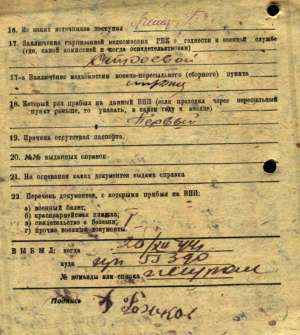 16. Из каких источников поступил
17. Заключение гарнизонной медкомиссии РВК о годности к военной службе
(где, какой комиссией и когда освидетельствован)
Строевой
17-а Заключение медкомиссии военно-пересыльного (сборного) пункта
18. Который раз прибыл на данный ВПП (если проходил через пересыльный
пункт раньше, то указать, в каком году и месяце)
Первый
19. Причина отсутствия паспорта.
20. №№ выданных справок.
21. На основании каких документов выдана справка
22. Перечень документов, с которыми прибыл на ВПП:
а) военный билет,
б) красноармейская книжка,
в) свидетельство о болезни,
г) прочие военные документы.
ВЫБЫЛ: когда
куда 55390
№ команды или списка
Подпись